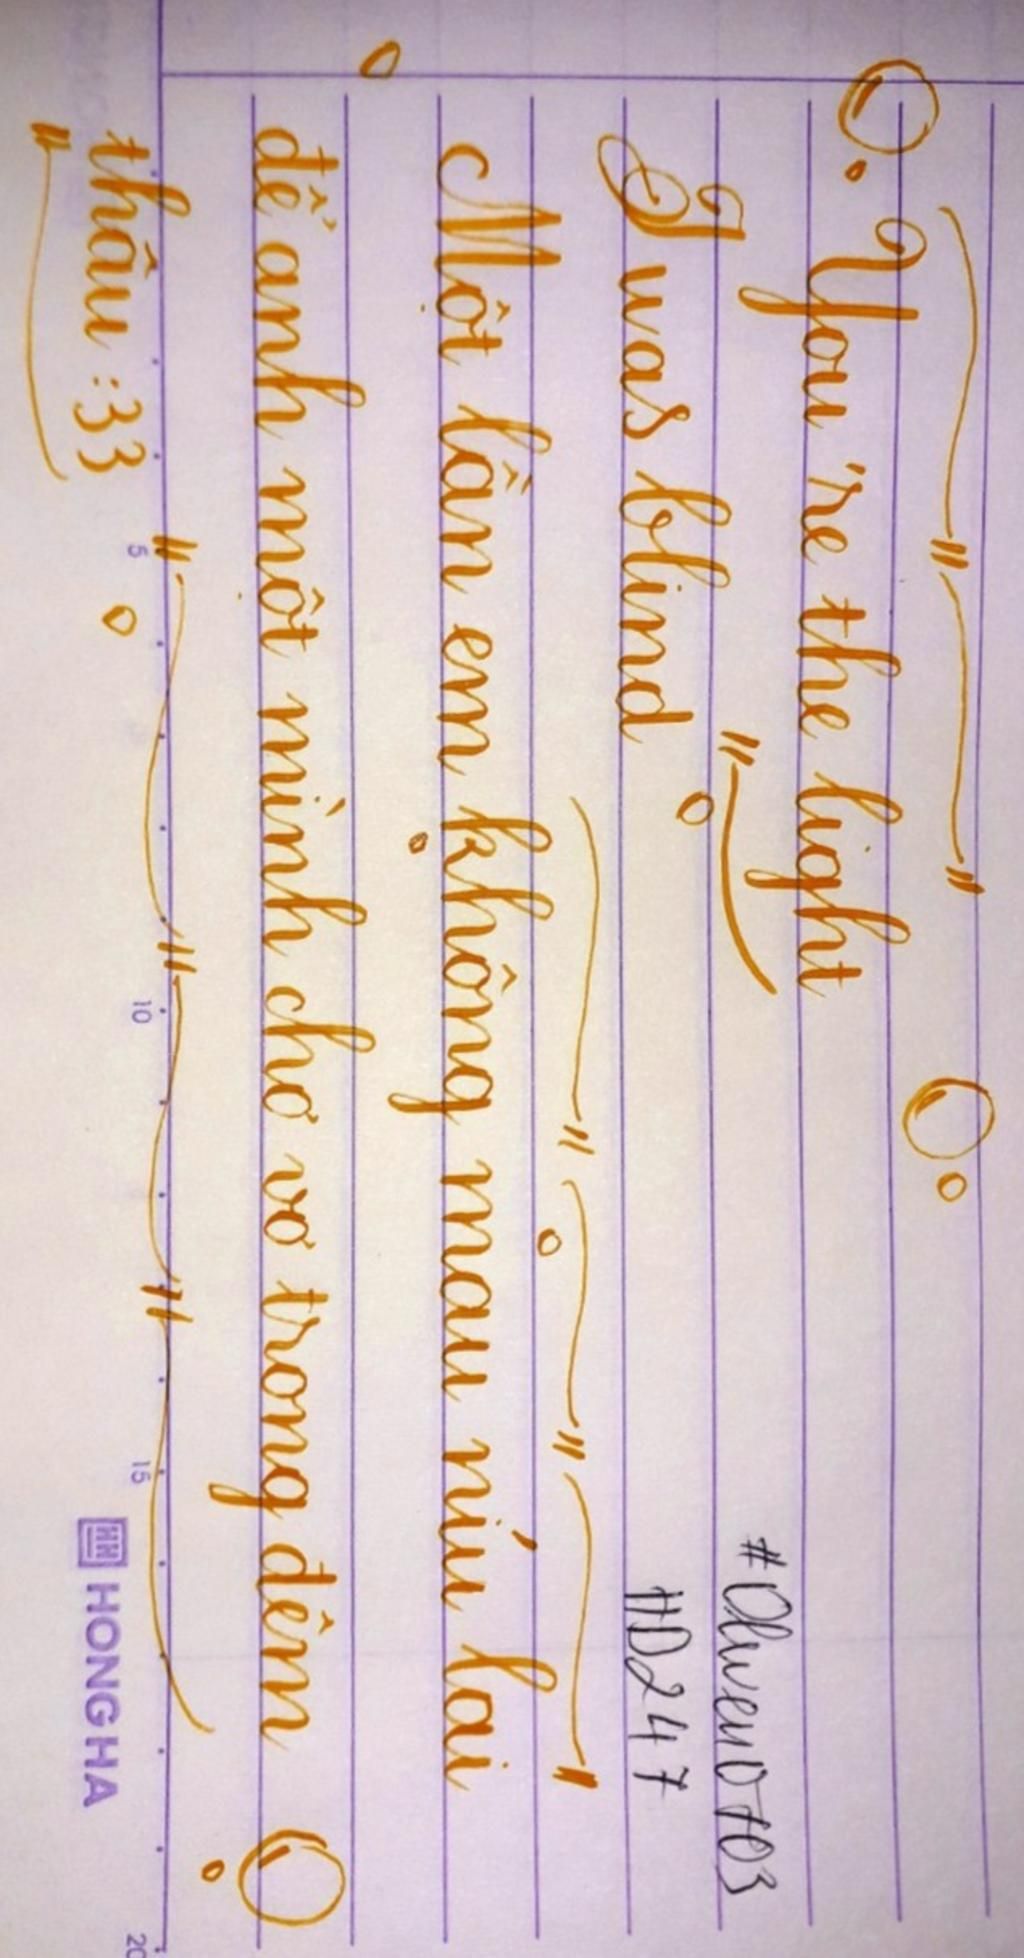 You're the light
I was blind
#Oliver0703
#D247
Một lần em không mau níu lai
để anh một mình chơ vơ trong đêm
thâu :33
5
10
15
20
HH HONG HA